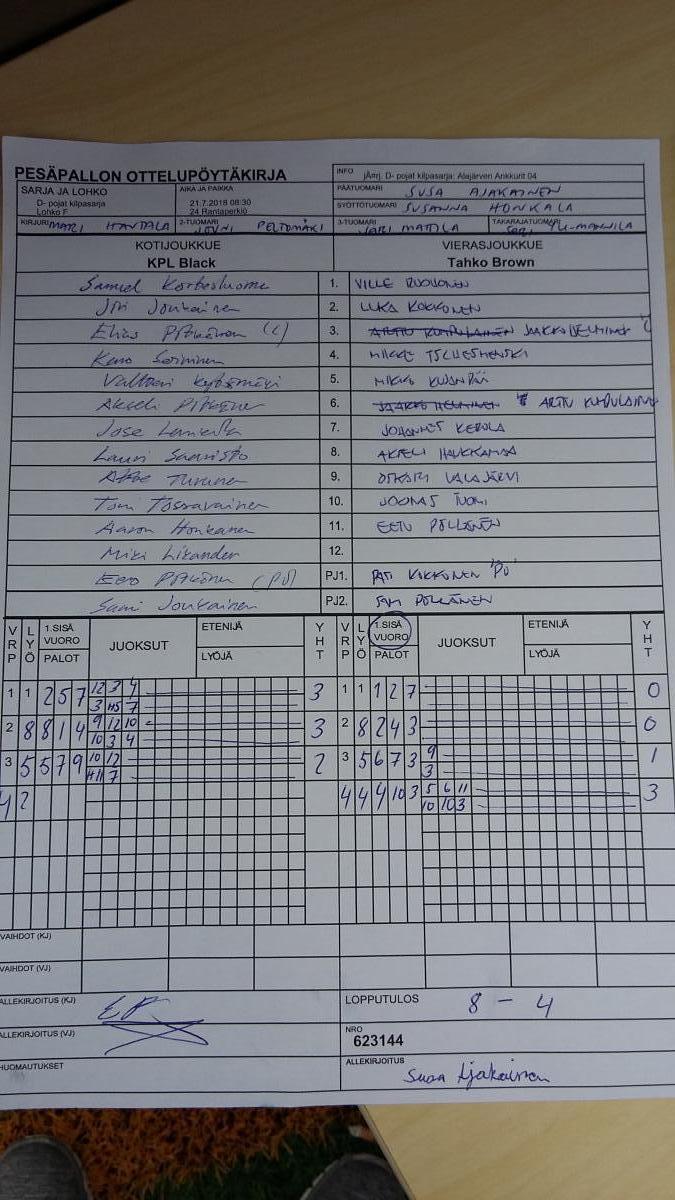 PESÄPALLON OTTELUPÖYTÄKIRJA
INFO jÄrrj. D- pojat kilpasarja: Alajärven Ankkurit 04
SARJA JA LOHKO
D- pojat kilpasarja
Lohko F
AIKA JA PAIKKA
21.7.2018 08:30
24 Rantaperkiö
PÄÄTUOMARI SUSA AJAKAINEN
SYÖTTÖTUOMARI SUSANNA HONKALA
KIRJURI MARI HANTALA 2-TUOMARI JOUNI PELTOMÄKI 3-TUOMARI JARI MATTILA TAKARAJATUOMARI SARI YLI-MANNILA
KOTIJOUKKUE VIERASJOUKKUE
KPL Black Tahko Brown
1. VILLE RUOHONEN
Joni Joukainen 2. LUKA KOKKONEN
Elias Pitkänen (C) 3. JAAKKO HELMINEN
4. MIKKE
5. MIKKO KUJANPÄÄ
Akseli Pitkänen 6. ARTTU KUMPULAINEN
7. JOHANNES KEROLA
Lauri Saaristo 8. AKSELI HAUKKAMAA
Atte Turunen 9. OSKARI VALAJÄRVI
Toni Tossavainen 10. JOONAS TUOMI
Aaron Honkanen 11. EETU PÖLLÄNEN
Miki Likander 12.
Eero Pitkänen (PJ) PJ1. PASI KAKKONEN
Sami Joukainen PJ2. SAMI PÖLLÄNEN
VRP LYÖ 1.SISÄ VUORO PALOT JUOKSUT ETENIJÄ LYÖJÄ YHT VRP LYÖ 1.SISÄ VUORO PALOT JUOKSUT ETENIJÄ LYÖJÄ YHT
1 1 2 5 7 12 3 4 3 1 1 1 2 7 0
3 4 5 7
2 8 8 1 4 9 12 10 3 2 8 2 4 3 0
10 3 4
3 5 5 7 9 10 12 2 3 5 6 7 3 9 1
11 7 3
4 2 4 4 4 10 3 5 6 11 3
10 10 3
VAIHDOT (KJ)
VAIHDOT (VJ)
ALLEKIRJOITUS (KJ) EP LOPPUTULOS 8 - 4
ALLEKIRJOITUS (VJ) NRO
623144
HUOMAUTUKSET ALLEKIRJOITUS
Susa Ajakainen